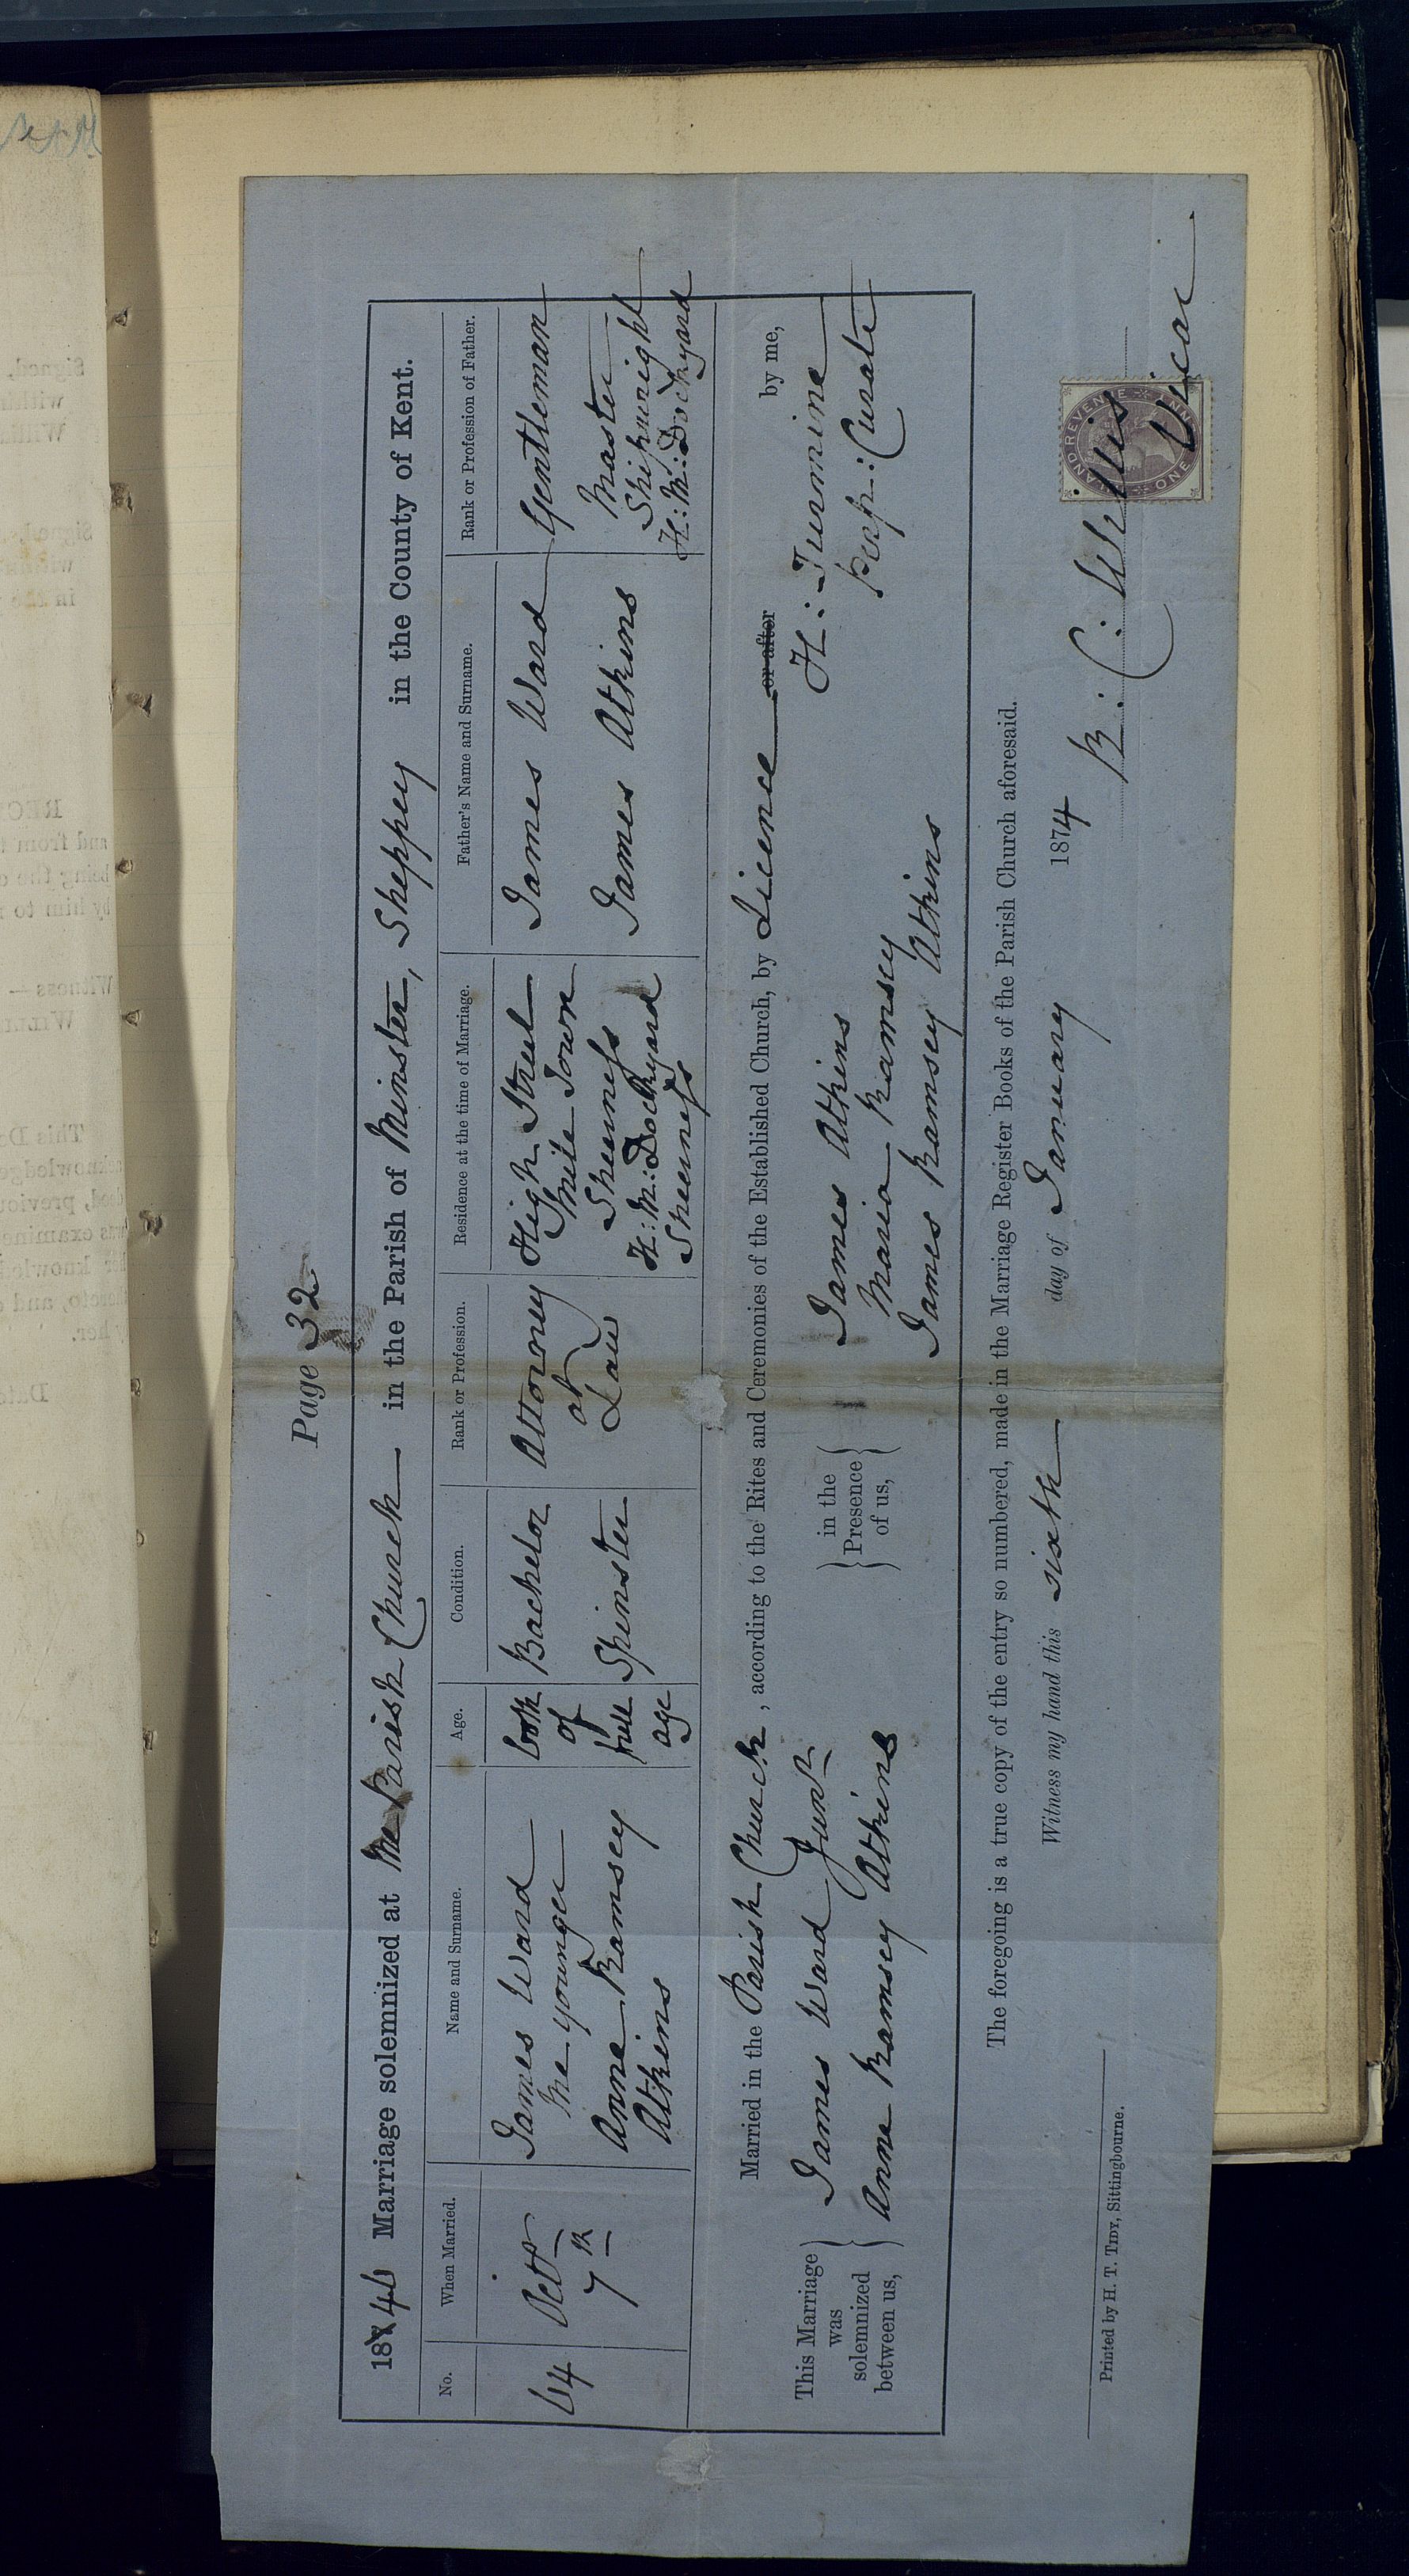 Page 32
1846 Marriage solemnized at the Parish Church in the Parish of Minster, Sheppey in the County of Kent.
No. When Married. Name and Surname. Age. Condition. Rank or Profession. Residence at the time of Marriage. Father's Name and Surname. Rank or Profession of Father.
64 Octr 7th James Ward the younger both of full age Bachelor Attorney at Law High Street Mile Town Sheerness James Ward Gentleman
Anne Ramsey Atkins Spinster H: M: Dockyard Sheerness James Atkins Master Shipwright H: M: Dockyard
Married in the Parish Church, according to the Rites and Ceremonies of the Established Church, by Licence or after by me,
H: Turmine
Perp: Curate
This Marriage was solemnized between us,
James Ward Junr
Anne Ramsey Atkins
in the Presence of us,
James Atkins
Maria Ramsey
James Ramsey Atkins
The foregoing is a true copy of the entry so numbered, made in the Marriage Register Books of the Parish Church aforesaid.
Witness my hand this sixth day of January 1874
Vicar
INLAND REVENUE
ONE PENNY
Printed by H. T. Tidy, Sittingbourne.